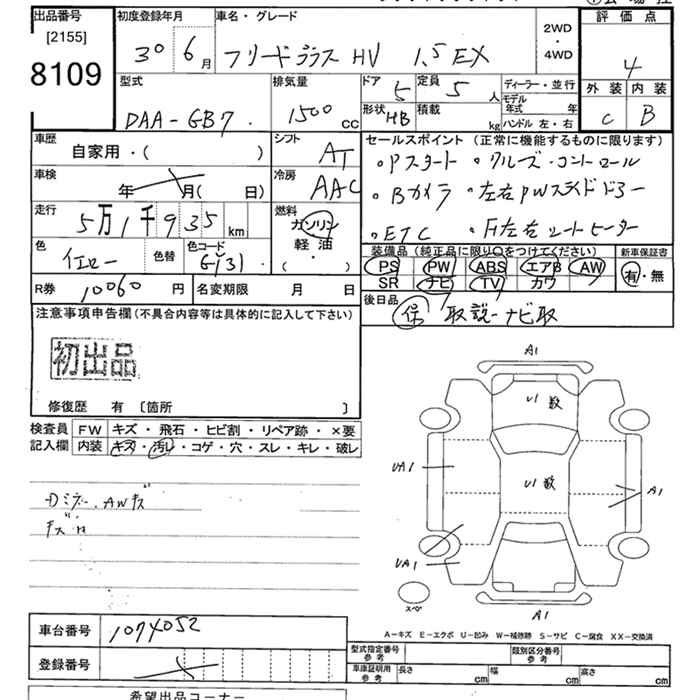 出品番号
[2155]
8109
初度登録年月
30 6月
車名・グレード
フリードプラス HV 1.5 EX
2WD
・
4WD
評価点
4
外装 内装
C B
型式
DAA-GB7
排気量
1500 cc
ドア 5
形状 HB
定員 5 人
積載 kg
ディーラー・並行
モデル年式 年
ハンドル 左・右
車歴
自家用・( )
シフト
AT
セールスポイント (正常に機能するものに限ります)
・Pスタート ・クルーズ・コントロール
・Bカメラ ・左右PWスライドドアー
・ETC ・F左右シートヒーター
車検
年 月( 日)
冷房
AAC
走行
5万1千935 km
燃料
ガソリン
軽油
( ・ )
色
イエロー
色替
色コード
G(3)
装備品 (純正品に限り○をつけてください)
PS PW ABS エアB AW
SR ナビ TV カワ
新車保証書
有・無
R券 10060 円
名変期限 月 日
後日品
保 取説 ナビ取
注意事項申告欄 (不具合内容等は具体的に記入して下さい)
初出品
修復歴 有 [箇所 ]
検査員記入欄
FW キズ・飛石・ヒビ割・リペア跡・×要
内装 キズ・汚レ・コゲ・穴・スレ・キレ・破レ
A1
U1 数
UA1
U1 数
A1
UA1
スペ
A1
A-キズ E-エクボ U-凹み W-補修跡 S-サビ C-腐食 XX-交換済
車台番号 1074052
登録番号
型式指定番号 参考
類別区分番号 参考
車庫証明用 参考
長さ cm
幅 cm
高さ cm
希望出品コーナー